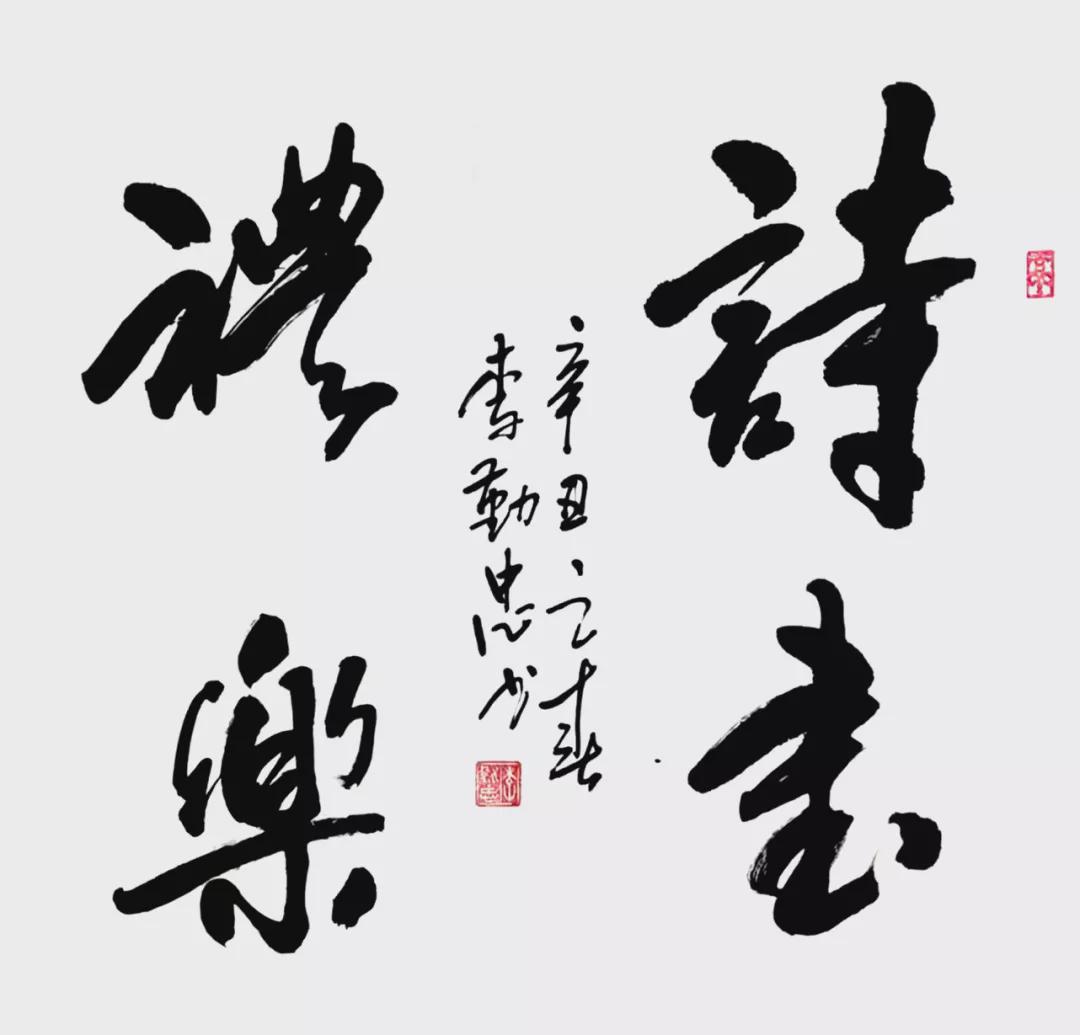 詩書
禮樂
辛丑之春
李勤忠书